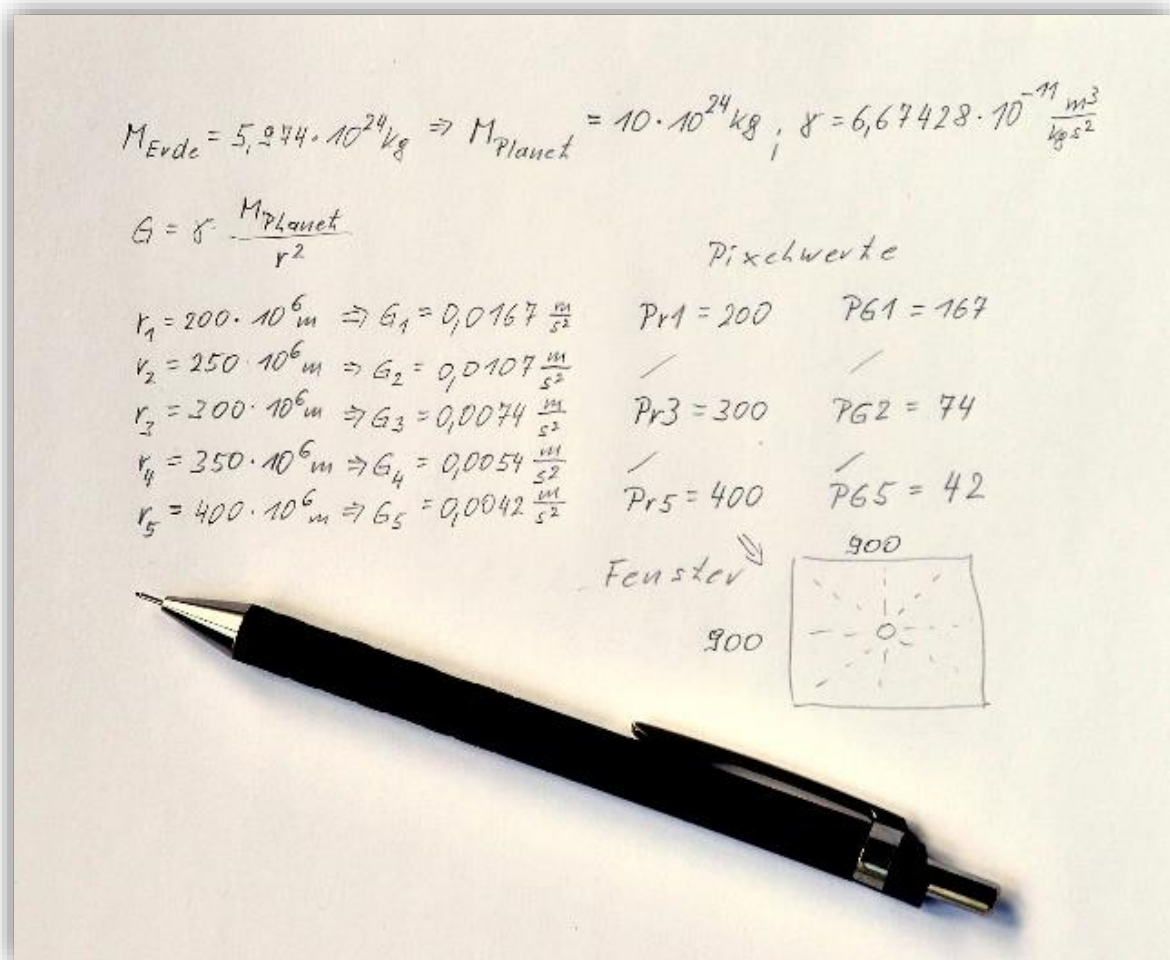 M_Erde = 5,974·10^24 kg ⇒ M_Planet = 10·10^24 kg ; γ = 6,67428·10^-11 m^3/kgs^2
G = γ · M_Planet/r^2
Pixelwerte
r_1 = 200·10^6 m ⇒ G_1 = 0,0167 m/s^2 Pr1 = 200 PG1 = 167
r_2 = 250·10^6 m ⇒ G_2 = 0,0107 m/s^2 / /
r_3 = 300·10^6 m ⇒ G_3 = 0,0074 m/s^2 Pr3 = 300 PG2 = 74
r_4 = 350·10^6 m ⇒ G_4 = 0,0054 m/s^2 / /
r_5 = 400·10^6 m ⇒ G_5 = 0,0042 m/s^2 Pr5 = 400 PG5 = 42
⇒ 900
Fenster
900